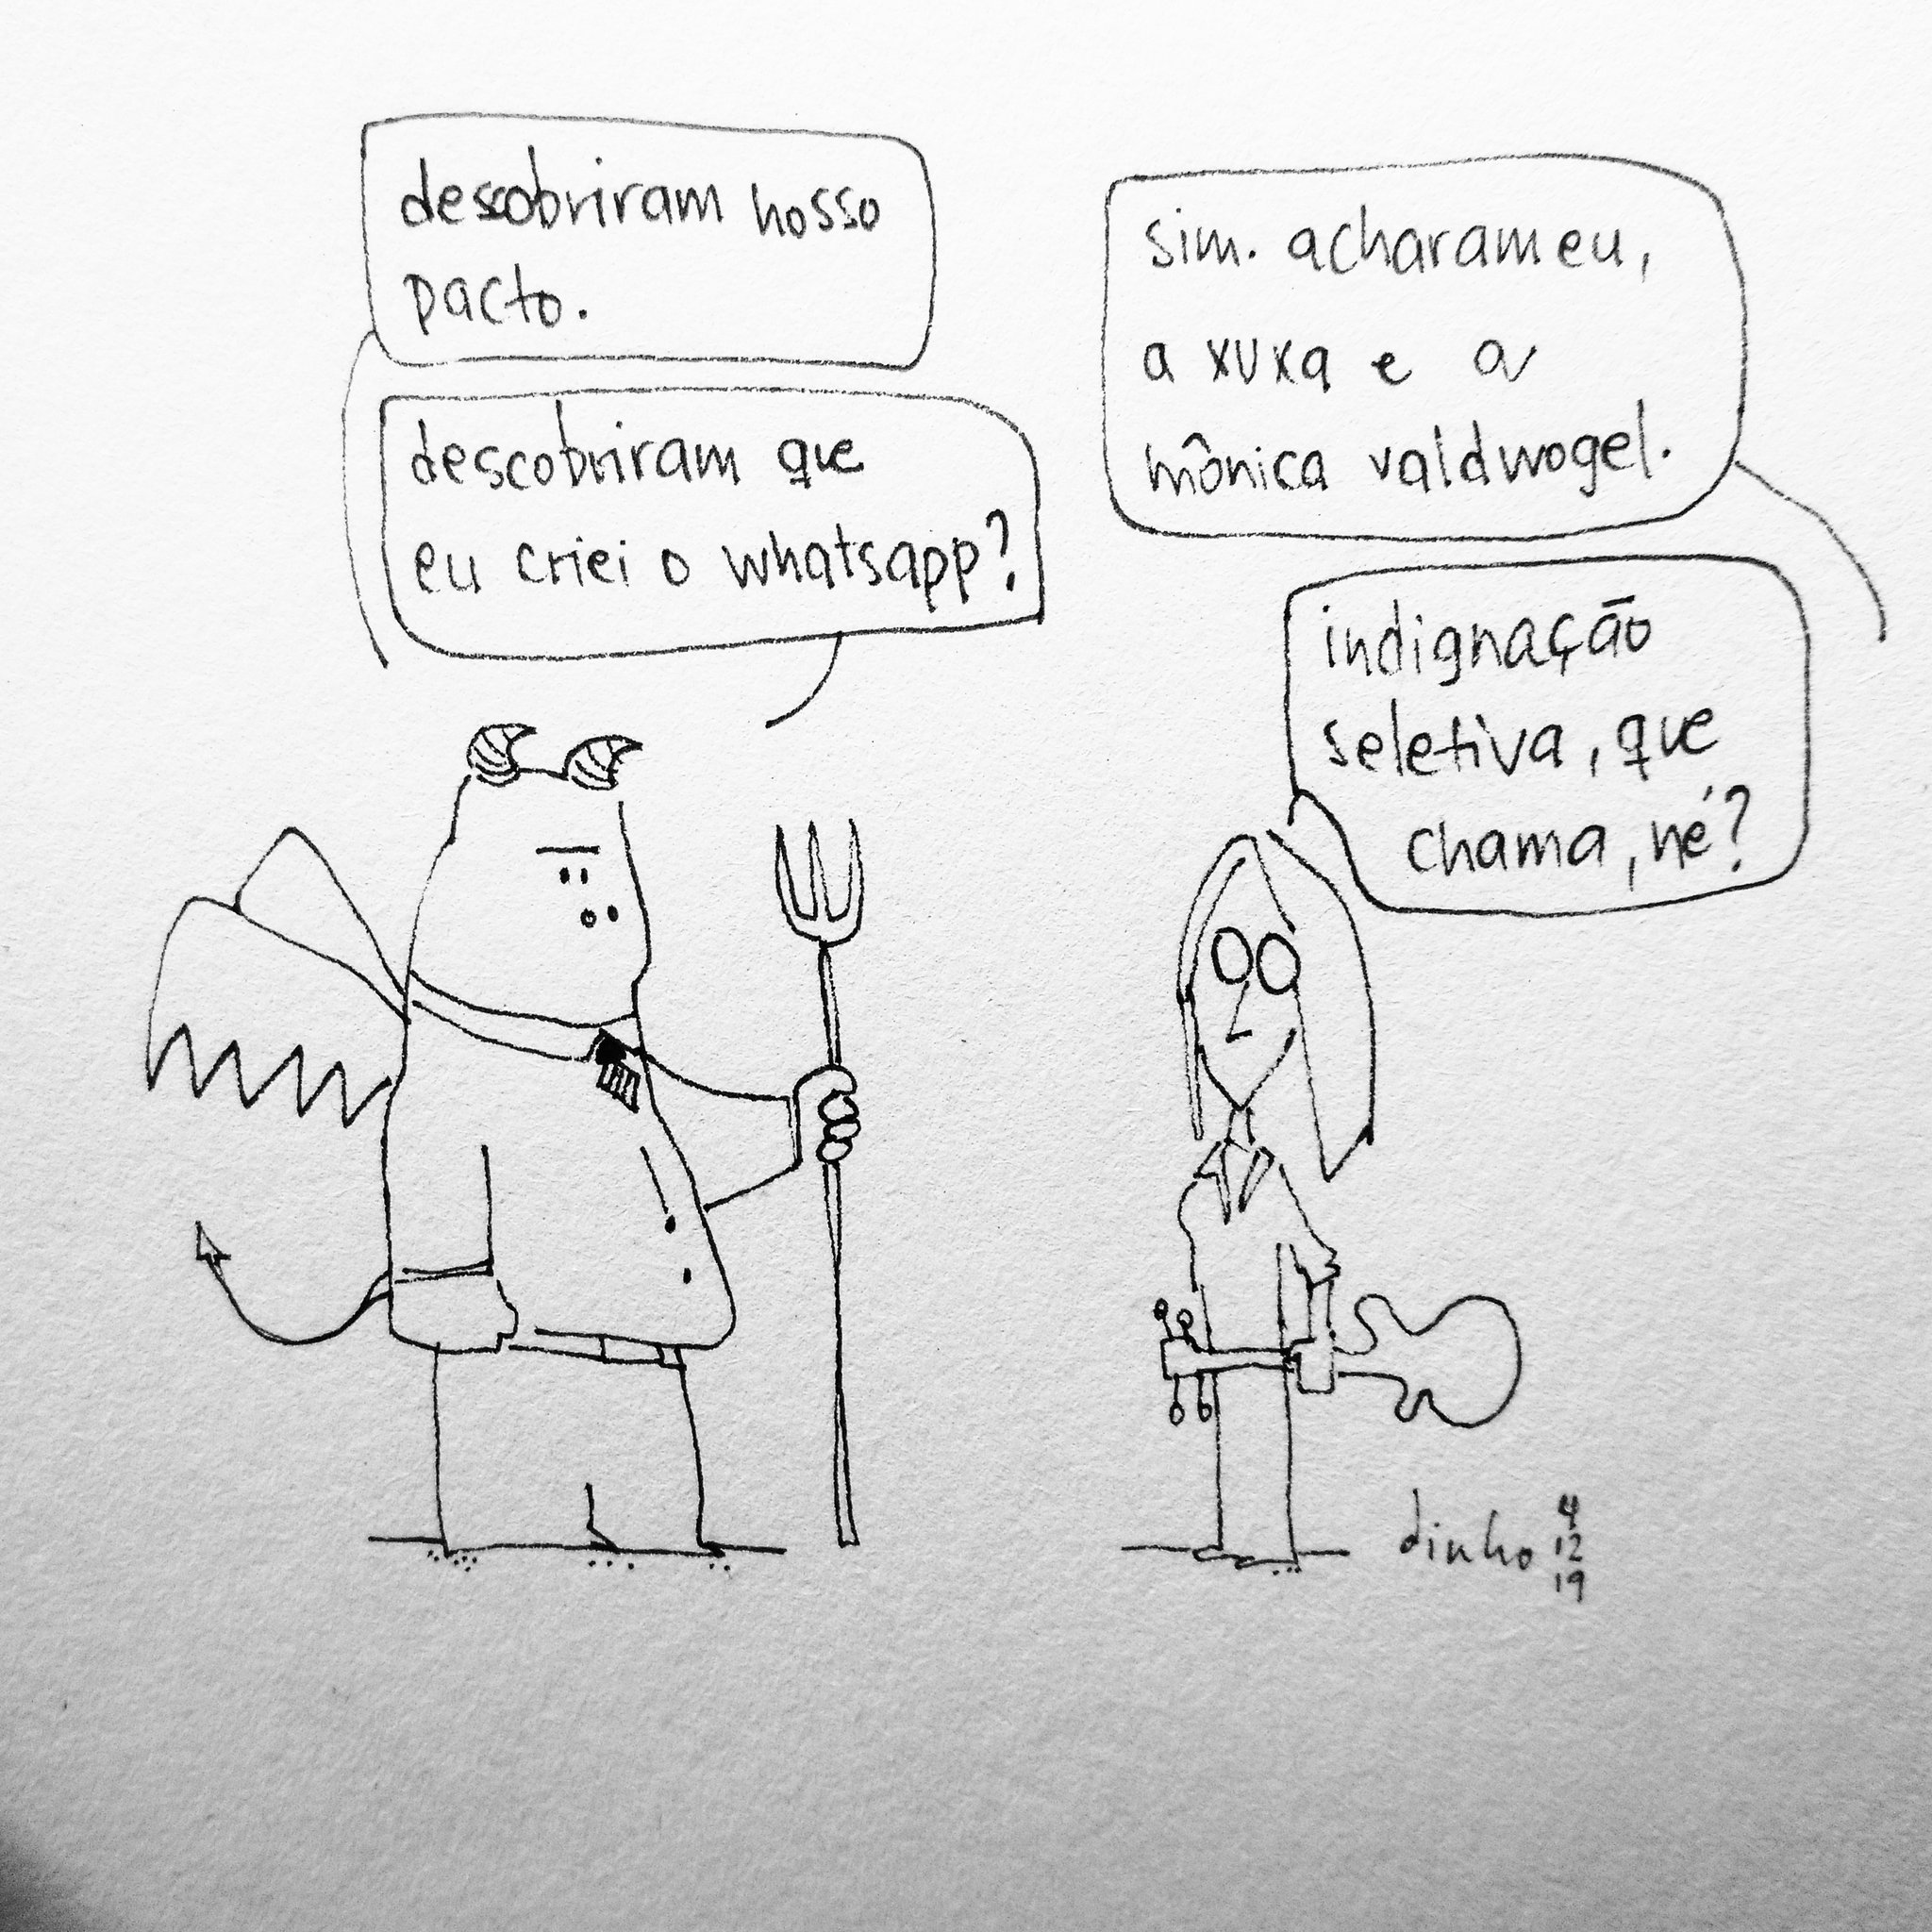 descobriram nosso
pacto.
sim. acharam eu,
a xuxa e a
mônica valdwogel.
descobriram que
eu criei o whatsapp?
indignação
seletiva, que
chama, né?
dinho 4
12
19